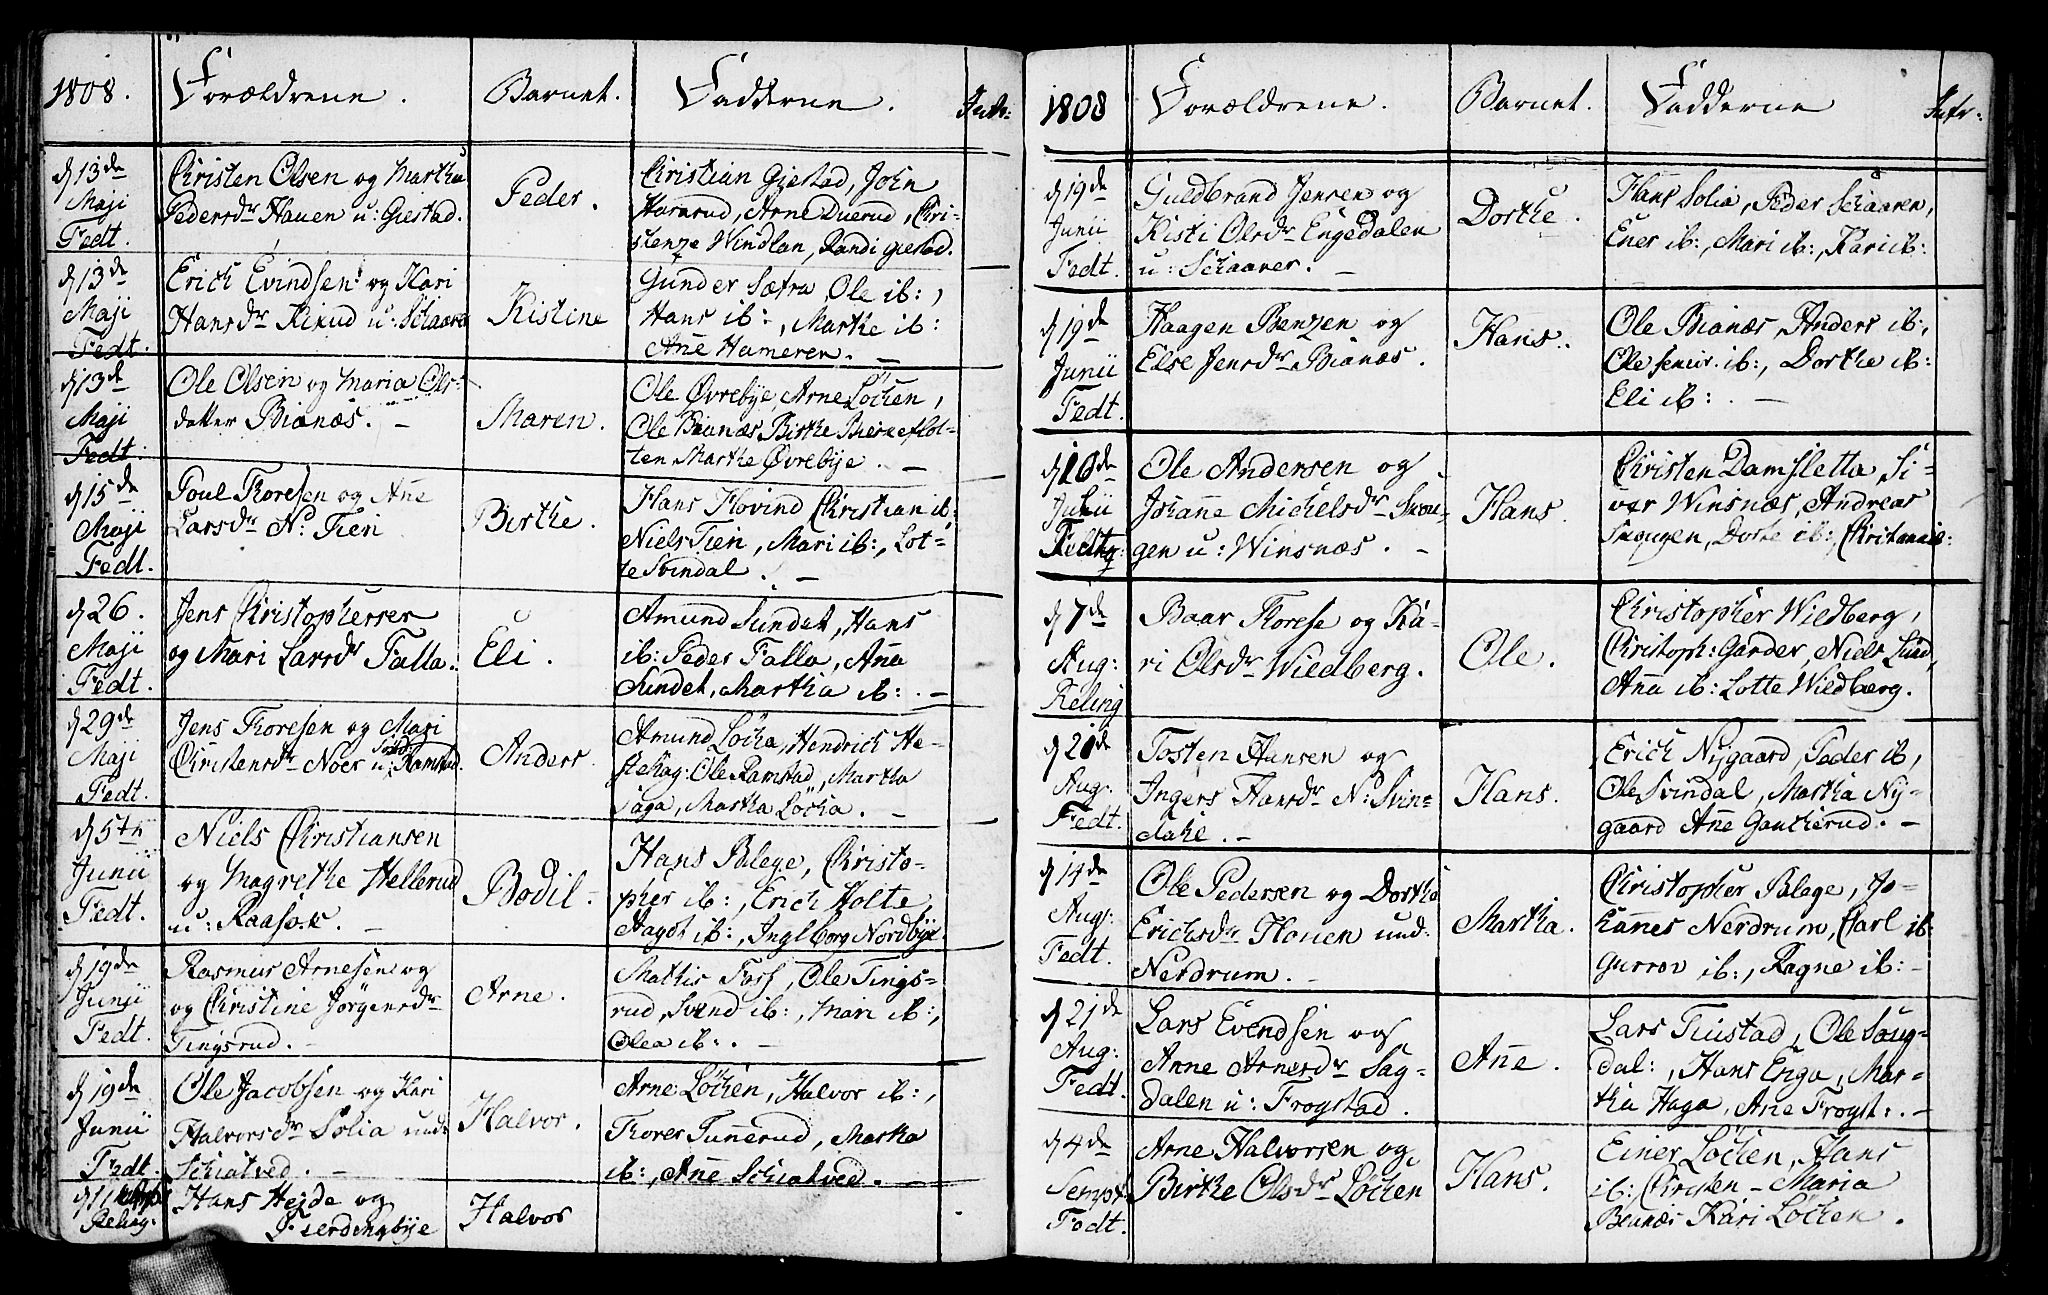 1808.
Forældrene.
Barnet.
Fadderne.
Intr:
d 13de
Maji
Fedt.
Christen Olsen og Martha
Pedersdr Hauen u: Giestad.
Peder.
Christian Gjestad, John
Hararud, Arne Duerud, Chri-
stenze Windlan, Randi giestad.
d 13de
Maji
Fedt.
Erich Evindsen og Kari
Hansdr Kirud u: Schaare
Kistine
Gunder Sætra, Ole ib:,
Hans ib:, Marthe ib:
Ane Hameren. —
d 13de
Maji
Fedt.
Ole Olsen og Maria Ols-
datter Bianæs. —
Maren.
Ole Øvrebye, Arne Løchen,
Ole Bianæs Birthe
ten Marthe Øvrebye. —
d 15de
Maji
Fedt.
Poul Thoresen og Ane
Larsdr N: Tien
Birthe.
Hans Hovind Christian ib:
Niels Tien, Mari ib:, Lot-
te Svindal. —
d 26.
Maji
Fedt.
Jens Christophersen
og Mari Larsdr Falla.
Eli.
Amund Sundet, Hans
ib: Peder Falla, Ana
Sundet, Martha ib: —
d 29de
Maji
Fedt.
Jens Thoresen og Mari
Christensdr Noer u: Ramstad.
Anders.
Amund Løcha, Hendrich He-
Ole Ramstad, Martha
Saga, Martha Løcha. —
d 5te
Junii
Fedt.
Niels Christiansen
og Magrethe Hellerud
u: Raasok. —
Bodil-
Hans Blege, Christo-
pher ib:, Erich Holte,
Aagot ib:, Inglborg Nordbye.
d 19de
Junii
Fedt.
Rasmus Arnesen og
og Christine Jørgensdr
Tingsrud. —
Arne.
Mathis Fors, Ole Tings-
rud, Svend ib:, Mari ib:,
Olea ib:. —
d 19de
Junii
Fedt.
Ole Jacobsen og Kari
Halvorsdr Solia und
Schiatved. —
Halvor.
Arne Løchen, Halvor ib:,
Thorer Tunerud, Martha
ib:, Ane Schiatved. —
d 11
Reling:
Hans Hejde og
Fierdingbye
Halvor
1808
Forældrene.
Barnet.
Fadderne
Intr:
d 19de
Junii
Fedt.
Guldbrand Jensen og
Kisti Olsdr Engedalen
u: Schaarer. —
Dorthe.
Hans Solia, Peder Schaaren,
Ener ib:, Mari ib:, Kari ib:
d 19de
Junii
Fedt.
Haagen Benzen og
Else Jensdr Bianæs.
Hans.
Ole Bianæs, Anders ib:,
Ole senior ib:, Dorthe ib:
Eli ib: —
d 10de
Julii
Ole Andersen og
Johanne Michelsdr Skou-
gen u: Winsnæs. —
Hans.
Christen Damsletta Si-
ver Winsnæs, Andreas
Dorte ib:,
d 7de
Aug:
Reling
Baar Thorese og Ka-
ri Olsdr Wiedberg.
Ole.
Christopher Wildberg,
Christoph: Garder, Niels Lund,
Ana ib: Lotte Wildberg.
d 20de
Aug:
Fedt.
Tosten Hansen og
Ingers Hansdr N: Svin=
dahl. —
Hans.
Erich Nijgaard, Peder ib,
Ole Svindal, Martha Ny-
gaard Ane Gautherud. —
d 14de
Augs:
Fedt.
Ole Pedersen og Dortha
Erichsdr Houen und:
Nerdrum. —
Martha.
Christopher Blege, Jo-
hannes Nerdrum, Carl ib:
Gurrov ib:, Ragne ib: —
d 21de
Aug:
Fedt.
Lars Evendsen og
Anne Arnesdr Sag-
dalen u: Frogstad.
Ane.
Lars Tiustad, Ole Soug-
dal:, Hans Enga, Mar-
tha Haga, Ane Frogst:. —
d 4de
Sempt
Fedt.
Arne Halvorsen og
Birthe Olsdr Løchen
Hans.
Einer Løchen, Hans
ib: Christen — Maria
Beanæs Kari Løchen.